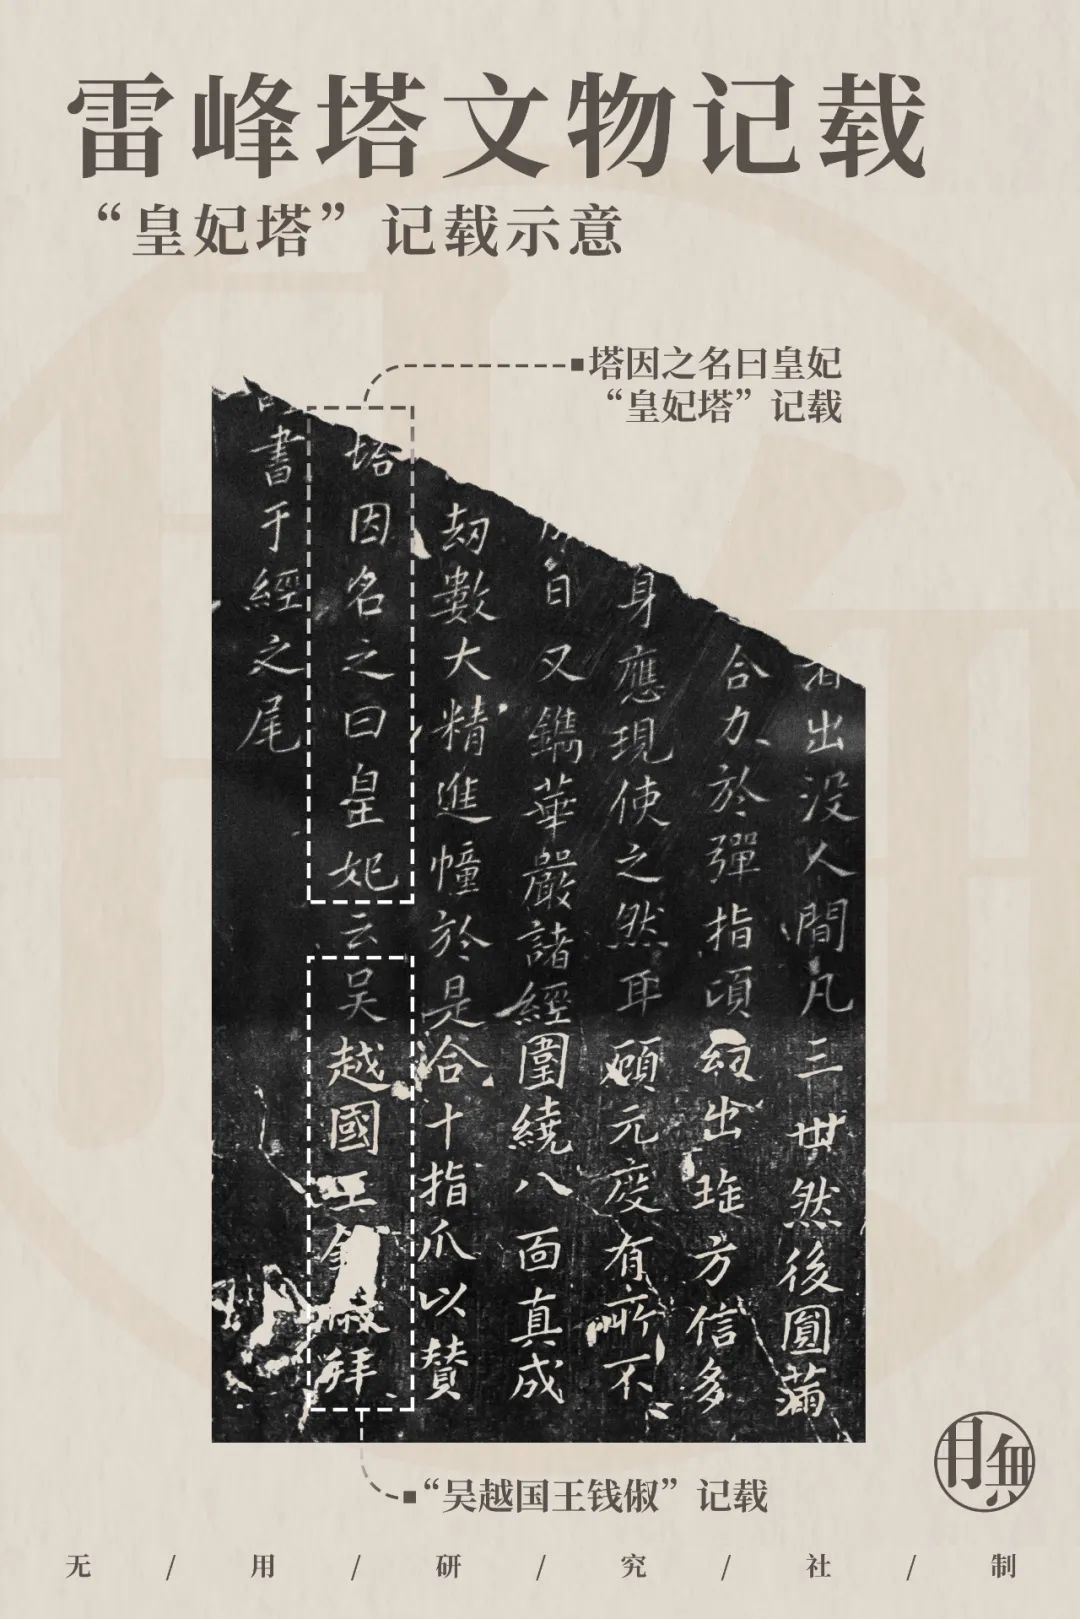 雷峰塔文物记载
“皇妃塔”记载示意
塔因之名曰皇妃
“皇妃塔”记载
出没人間凡三世然後圓滿
合力於彈指頃幻出琁方信多
身應現使之然耶顧元度有所不
日又鐫華嚴諸經圍繞八面真成
劫數大精進幢於是合十指爪以贊
塔因名之曰皇妃云吴越國王錢俶拜
書于經之尾
“吴越国王钱俶”记载
無用
无/用/研/究/社/制